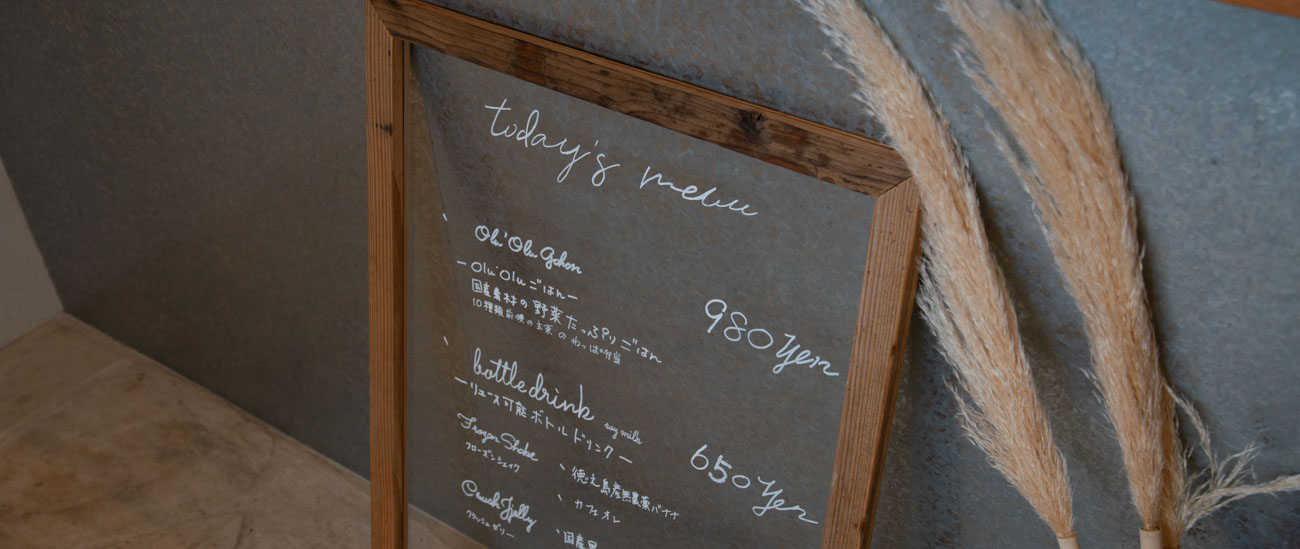 today's menu
Olu'Olu Gohan
ーOlu'Oluごはんー
国産素材の野菜たっぷりごはん
10種類前後の主菜のわっぱ弁当
980yen
bottledrink
soy milk
ーリユース可能ボトルドリンクー
650yen
Frozen Shake
フローズンシェイク
、徳之島産無農薬バナナ
、カフェオレ
Crush Jelly
クラッシュゼリー
、国産